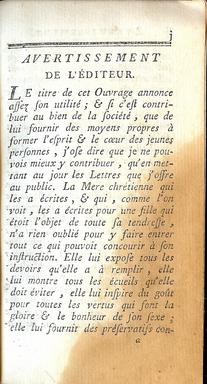 j
AVERTISSEMENT
DE L'ÉDITEUR.
LE titre de cet Ouvrage annonce
assez son utilité ; & si c'est contri-
buer au bien de la société, que de
lui fournir des moyens propres à
former l'esprit & le cœur des jeunes
personnes, j'ose dire que je ne pou-
vois mieux y contribuer, qu'en met-
tant au jour les Lettres que j'offre
au public. La Mere chrétienne qui
les a écrites, & qui, comme l'on
voit, les a écrites pour une fille qui
étoit l'objet de toute sa tendresse,
n'a rien oublié pour y faire entrer
tout ce qui pouvoit concourir à son
instruction. Elle lui expose tous les
devoirs qu'elle a à remplir, elle
lui montre tous les écueils qu'elle
doit éviter, elle lui inspire du goût
pour toutes les vertus qui font la
gloire & le bonheur de son sexe ;
elle lui fournit des préservatifs con-
a